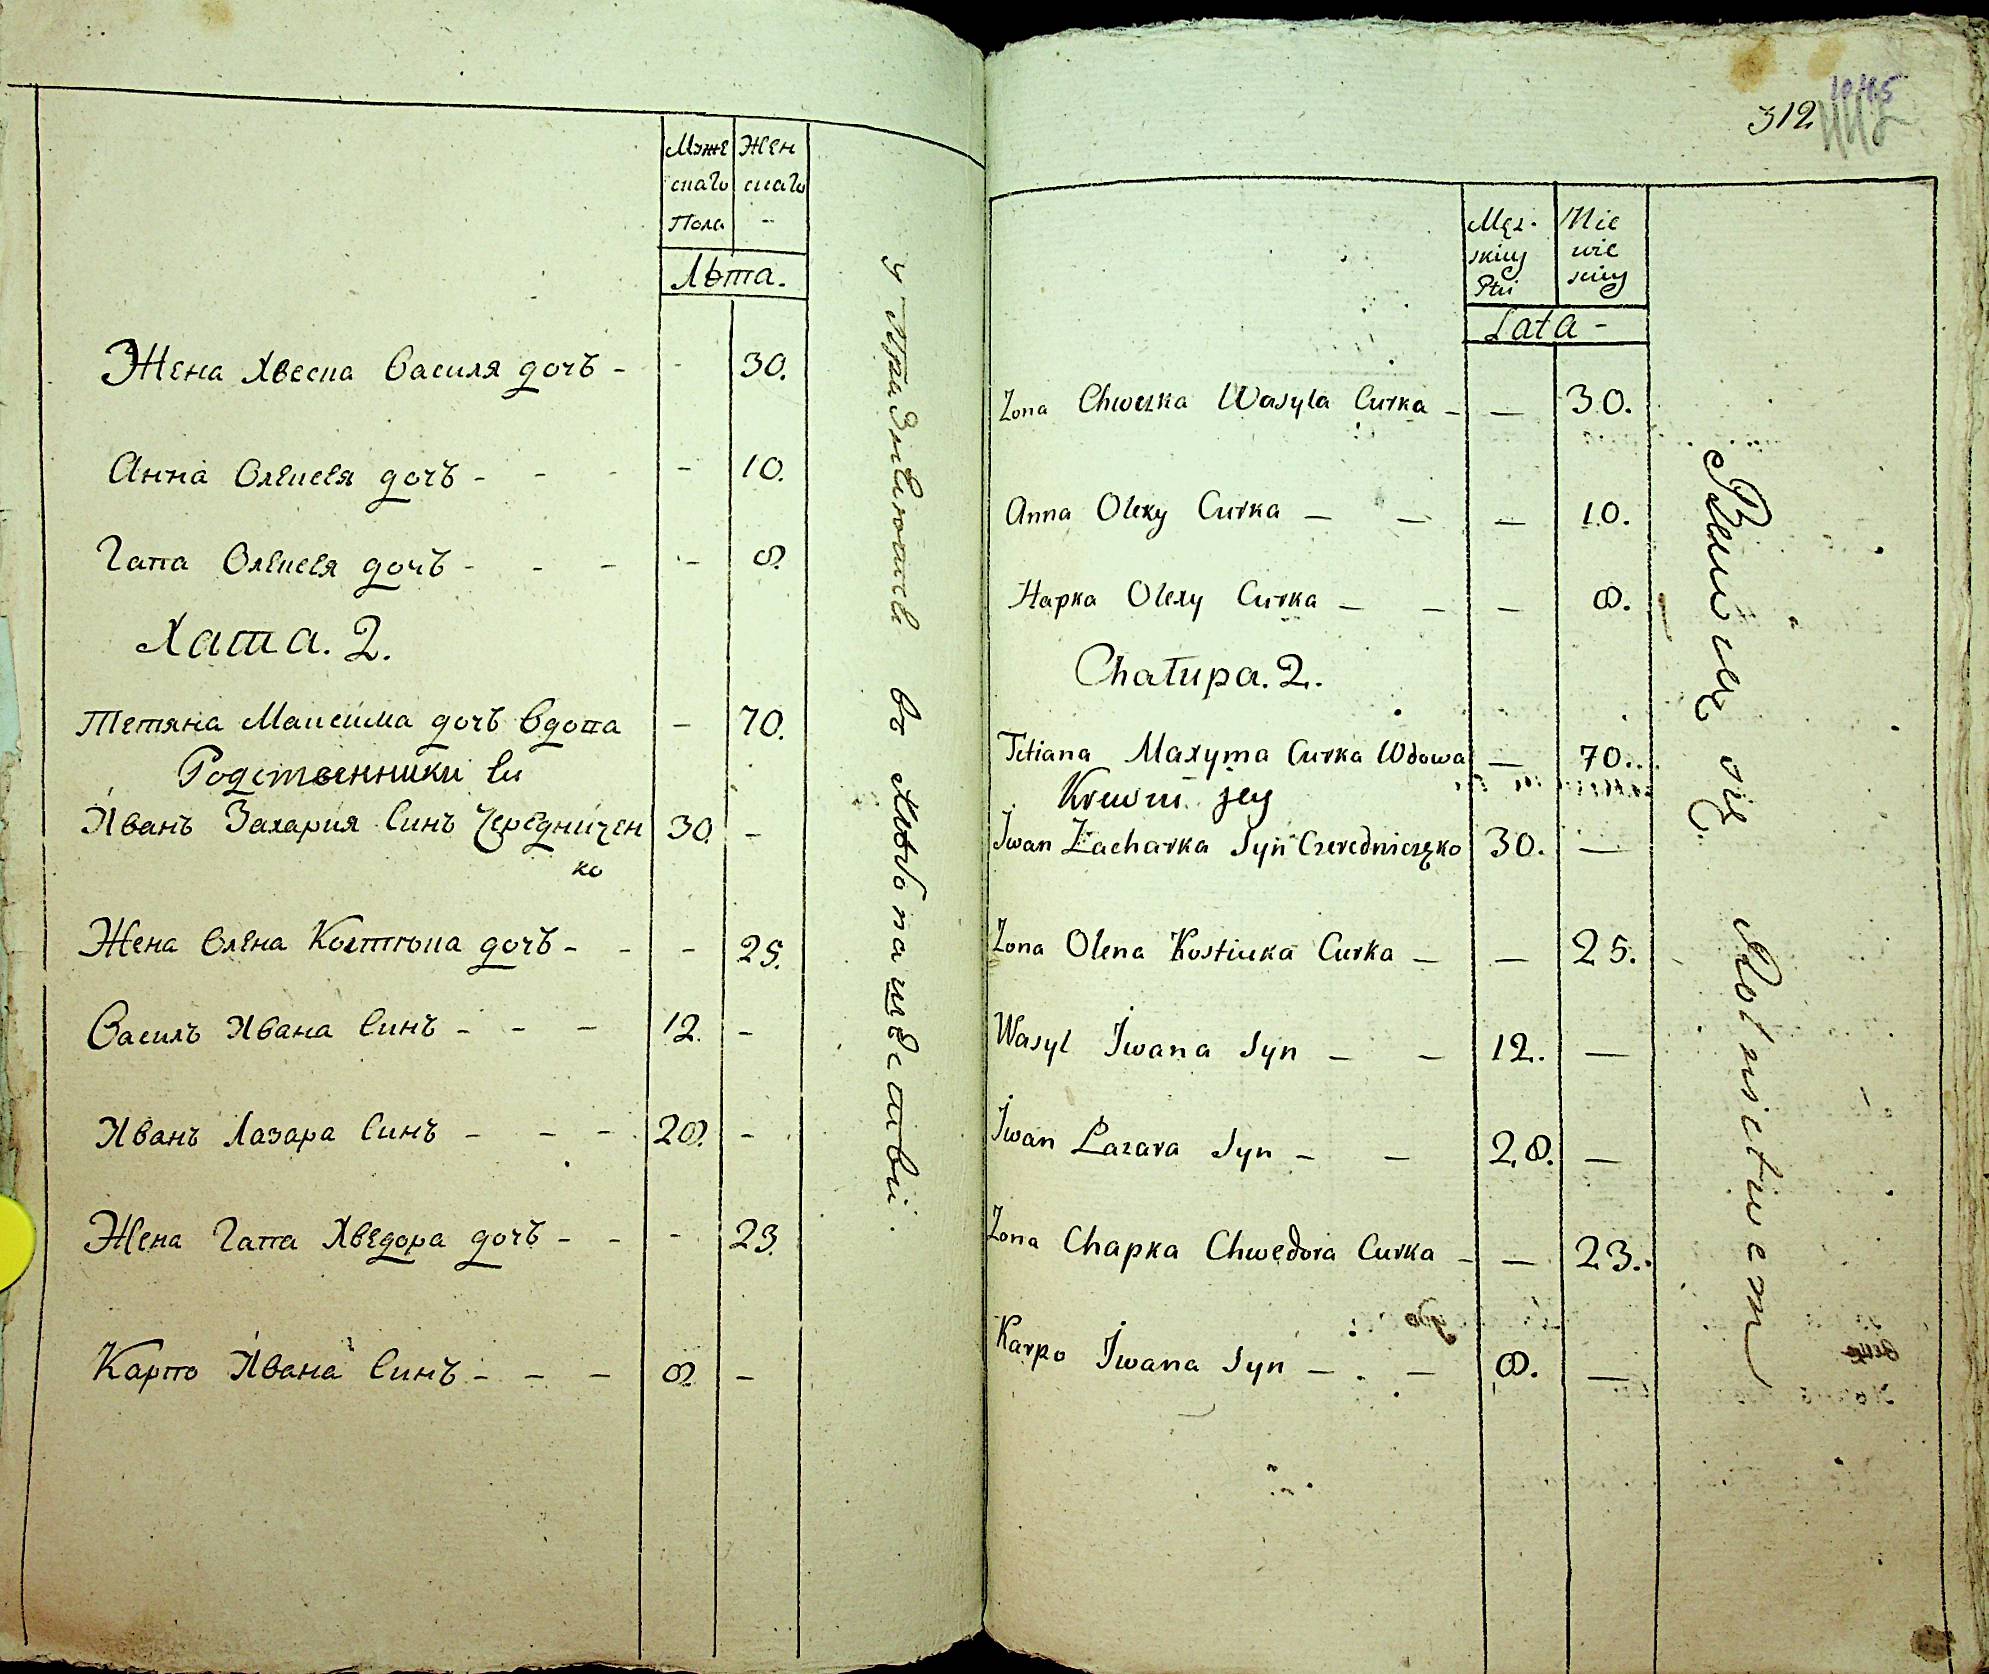 Муже Жен
скаго скаго
Пола -
Лѣта.
Жена Хвеска Василя дочъ - - 30.
Анна Олексея дочъ - - - - 10.
Гапа Олексея дочъ - - - - 8.
Хата. 2.
Тетяна Максима дочъ вдова - 70.
Родственники ея
Иванъ Захария Синъ Чередничен 30. -
ко
Жена Олена Костюка дочъ - - - 25.
Василъ Ивана Синъ - - - 12. -
Иванъ Лазара Синъ - - - 28. -
Жена Гапа Хведора дочъ - - - 23.
Карпо Ивана Синъ - - - 8. -
въ Хлѣбопашествѣ.
312
1045
Męz- Nie
skiey wie
Płci skiey
Lata -
Zona Chweska Wasyla Curka - — 30.
Anna Olexy Curka — — — 10.
Hapka Olexy Curka — — — 8.
Chałupa. 2.
Tetiana Maxyma Curka Wdowa — 70.
Krewni jey
Iwan Zacharka Syn Czeredniczęko 30. —
Zona Olena Kostiuka Curka — — 25.
Wasyl Iwana Syn — — 12. —
Iwan Łazara Syn — — 28. —
Zona Chapka Chwedora Curka - — 23.
Karpo Iwana Syn — — 8. —
się Rolnictwem